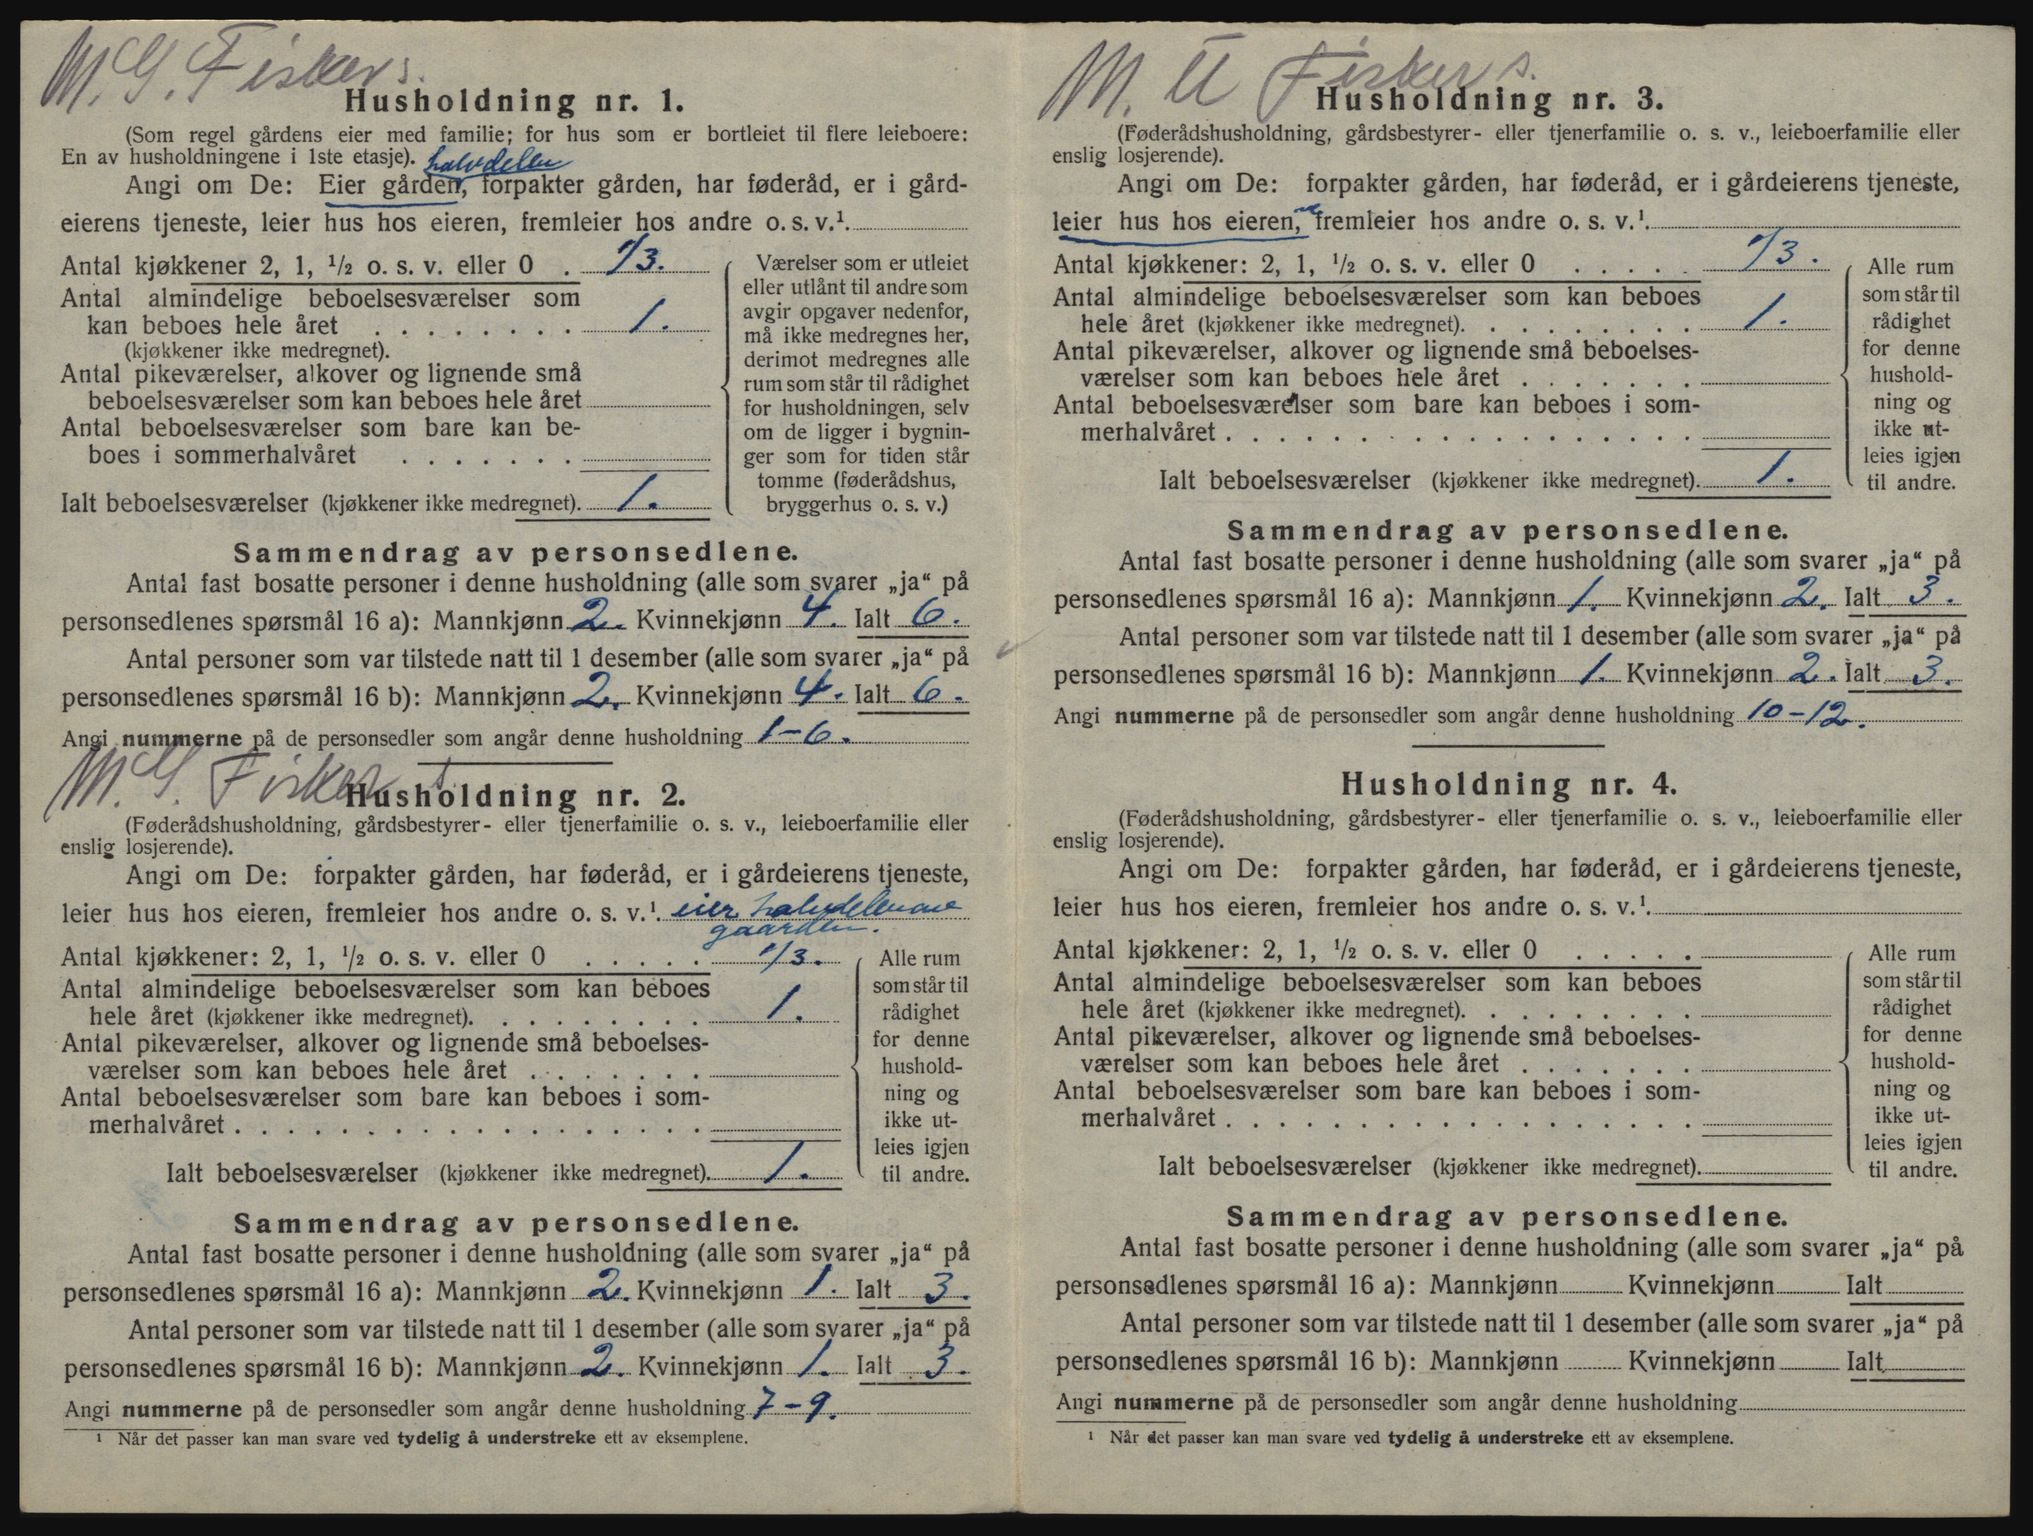 M. G. Fisker s.
Husholdning nr. 1.
(Som regel gårdens eier med familie; for hus som er bortleiet til flere leieboere:
En av husholdningene i 1ste etasje). halvdelen
Angi om De: Eier gården, forpakter gården, har føderåd, er i gård-
eierens tjeneste, leier hus hos eieren, fremleier hos andre o. s. v.¹.
Antal kjøkkener 2, 1, ½ o. s. v. eller 0 . 1/3.
Antal almindelige beboelsesværelser som
kan beboes hele året . . . . . . . . 1.
(kjøkkener ikke medregnet).
Antal pikeværelser, alkover og lignende små
beboelsesværelser som kan beboes hele året
Antal beboelsesværelser som bare kan be-
boes i sommerhalvåret . . . . . . .
Ialt beboelsesværelser (kjøkkener ikke medregnet). 1.
Værelser som er utleiet
eller utlånt til andre som
avgir opgaver nedenfor,
må ikke medregnes her,
derimot medregnes alle
rum som står til rådighet
for husholdningen, selv
om de ligger i bygnin-
ger som for tiden står
tomme (føderådshus,
bryggerhus o. s. v.)
Sammendrag av personsedlene.
Antal fast bosatte personer i denne husholdning (alle som svarer „ja“ på
personsedlenes spørsmål 16 a): Mannkjønn 2. Kvinnekjønn 4. Ialt 6.
Antal personer som var tilstede natt til 1 desember (alle som svarer „ja“ på
personsedlenes spørsmål 16 b): Mannkjønn 2. Kvinnekjønn 4. Ialt 6.
Angi nummerne på de personsedler som angår denne husholdning 1-6.
M. G. Fisker s
Husholdning nr. 2.
(Føderådshusholdning, gårdsbestyrer- eller tjenerfamilie o. s. v., leieboerfamilie eller
enslig losjerende).
Angi om De: forpakter gården, har føderåd, er i gårdeierens tjeneste,
leier hus hos eieren, fremleier hos andre o. s. v.¹. eier halvdelen av
gaarden.
Antal kjøkkener: 2, 1, ½ o. s. v. eller 0 . . . . . 1/3.
Antal almindelige beboelsesværelser som kan beboes
hele året (kjøkkener ikke medregnet). . . . . . . . . 1.
Antal pikeværelser, alkover og lignende små beboelses-
værelser som kan beboes hele året . . . . . . .
Antal beboelsesværelser som bare kan beboes i som-
merhalvåret . . . . . . . . . . . . . . . . . .
Ialt beboelsesværelser (kjøkkener ikke medregnet). 1.
Alle rum
som står til
rådighet
for denne
hushold-
ning og
ikke ut-
leies igjen
til andre.
Sammendrag av personsedlene.
Antal fast bosatte personer i denne husholdning (alle som svarer „ja“ på
personsedlenes spørsmål 16 a): Mannkjønn 2. Kvinnekjønn 1. Ialt 3.
Antal personer som var tilstede natt til 1 desember (alle som svarer „ja“ på
personsedlenes spørsmål 16 b): Mannkjønn 2. Kvinnekjønn 1. Ialt 3.
Angi nummerne på de personsedler som angår denne husholdning 7-9.
¹ Når det passer kan man svare ved tydelig å understreke ett av eksemplene.
M. U Fisker s.
Husholdning nr. 3.
(Føderådshusholdning, gårdsbestyrer- eller tjenerfamilie o. s. v., leieboerfamilie eller
enslig losjerende).
Angi om De: forpakter gården, har føderåd, er i gårdeierens tjeneste,
leier hus hos eieren, fremleier hos andre o. s. v.¹.
Antal kjøkkener: 2, 1, ½ o. s. v. eller 0 . . . . . 1/3.
Antal almindelige beboelsesværelser som kan beboes
hele året (kjøkkener ikke medregnet). . . . . . . . . 1.
Antal pikeværelser, alkover og lignende små beboelses-
værelser som kan beboes hele året . . . . . . .
Antal beboelsesværelser som bare kan beboes i som-
merhalvåret . . . . . . . . . . . . . . . . . .
Ialt beboelsesværelser (kjøkkener ikke medregnet). 1.
Alle rum
som står til
rådighet
for denne
hushold-
ning og
ikke ut-
leies igjen
til andre.
Sammendrag av personsedlene.
Antal fast bosatte personer i denne husholdning (alle som svarer „ja“ på
personsedlenes spørsmål 16 a): Mannkjønn 1. Kvinnekjønn 2. Ialt 3.
Antal personer som var tilstede natt til 1 desember (alle som svarer „ja“ på
personsedlenes spørsmål 16 b): Mannkjønn 1. Kvinnekjønn 2. Ialt 3.
Angi nummerne på de personsedler som angår denne husholdning 10-12.
Husholdning nr. 4.
(Føderådshusholdning, gårdsbestyrer- eller tjenerfamilie o. s. v., leieboerfamilie eller
enslig losjerende).
Angi om De: forpakter gården, har føderåd, er i gårdeierens tjeneste,
leier hus hos eieren, fremleier hos andre o. s. v.¹.
Antal kjøkkener: 2, 1, ½ o. s. v. eller 0 . . . . .
Antal almindelige beboelsesværelser som kan beboes
hele året (kjøkkener ikke medregnet). . . . . . . . .
Antal pikeværelser, alkover og lignende små beboelses-
værelser som kan beboes hele året . . . . . . .
Antal beboelsesværelser som bare kan beboes i som-
merhalvåret . . . . . . . . . . . . . . . . . .
Ialt beboelsesværelser (kjøkkener ikke medregnet).
Alle rum
som står til
rådighet
for denne
hushold-
ning og
ikke ut-
leies igjen
til andre.
Sammendrag av personsedlene.
Antal fast bosatte personer i denne husholdning (alle som svarer „ja“ på
personsedlenes spørsmål 16 a): Mannkjønn Kvinnekjønn Ialt
Antal personer som var tilstede natt til 1 desember (alle som svarer „ja“ på
personsedlenes spørsmål 16 b): Mannkjønn Kvinnekjønn Ialt
Angi nummerne på de personsedler som angår denne husholdning
¹ Når det passer kan man svare ved tydelig å understreke ett av eksemplene.